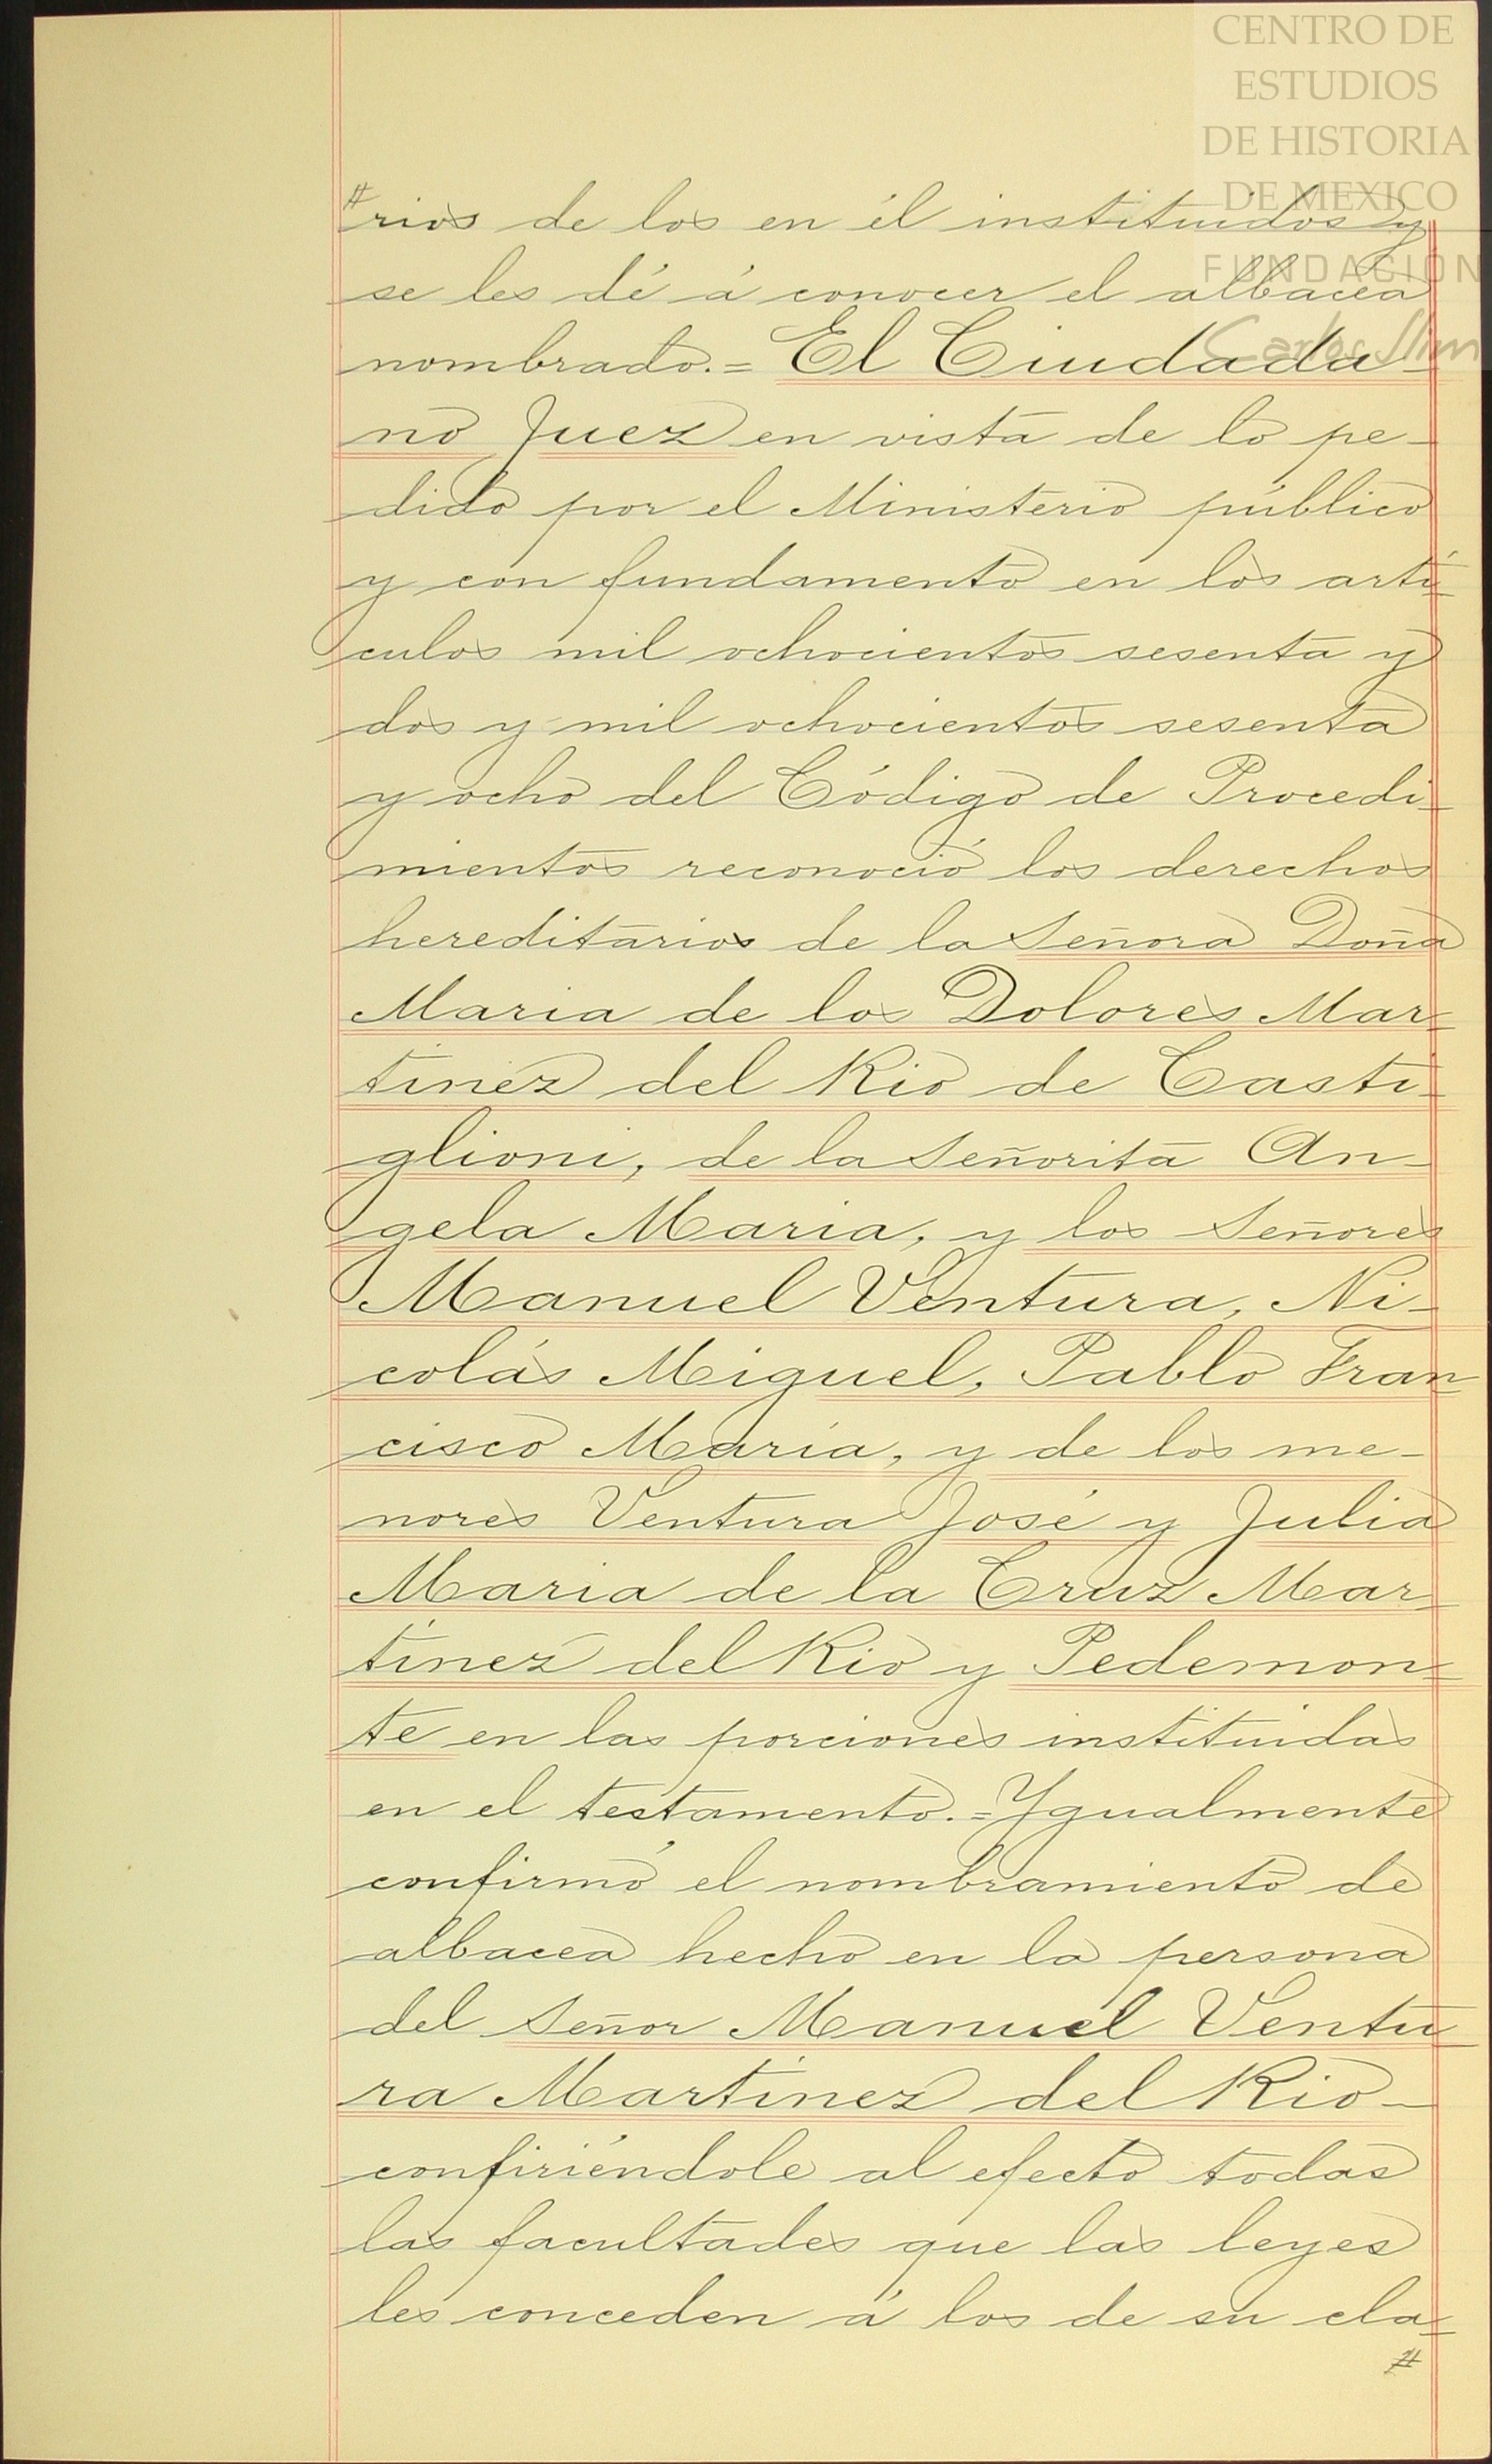 CENTRO DE
ESTUDIOS
DE HISTORIA
DE MEXICO
FUNDACION
Carlos Slim
#rios de los en él instituidos y
se les dé á conocer el albacea
nombrado.= El Ciudada-
no Juez en vista de lo pe-
dido por el Ministerio público
y con fundamento en los artí-
culos mil ochocientos sesenta y
dos y mil ochocientos sesenta
y ocho del Código de Procedi-
mientos reconoció los derechos
hereditarios de la Señora Doña
Maria de los Dolores Mar-
tinez del Rio de Casti-
glioni, de la Señorita An-
gela Maria, y los Señores
Manuel Ventura, Ni-
colás Miguel, Pablo Fran
cisco María, y de los me-
nores Ventura José y Julia
Maria de la Cruz Mar-
tinez del Rio y Pedemon-
te en las porciones instituidas
en el testamento.= Ygualmente
confirmó el nombramiento de
albacea hecho en la persona
del Señor Manuel Ventu-
ra Martinez del Rio-
confiriéndole al efecto todas
las facultades que las leyes
les conceden á los de su cla-
#